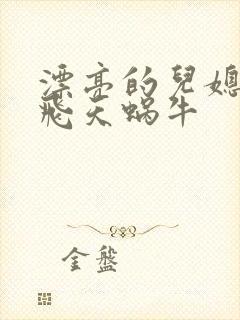 漂亮的兒媳
飛天蝸牛
金盤